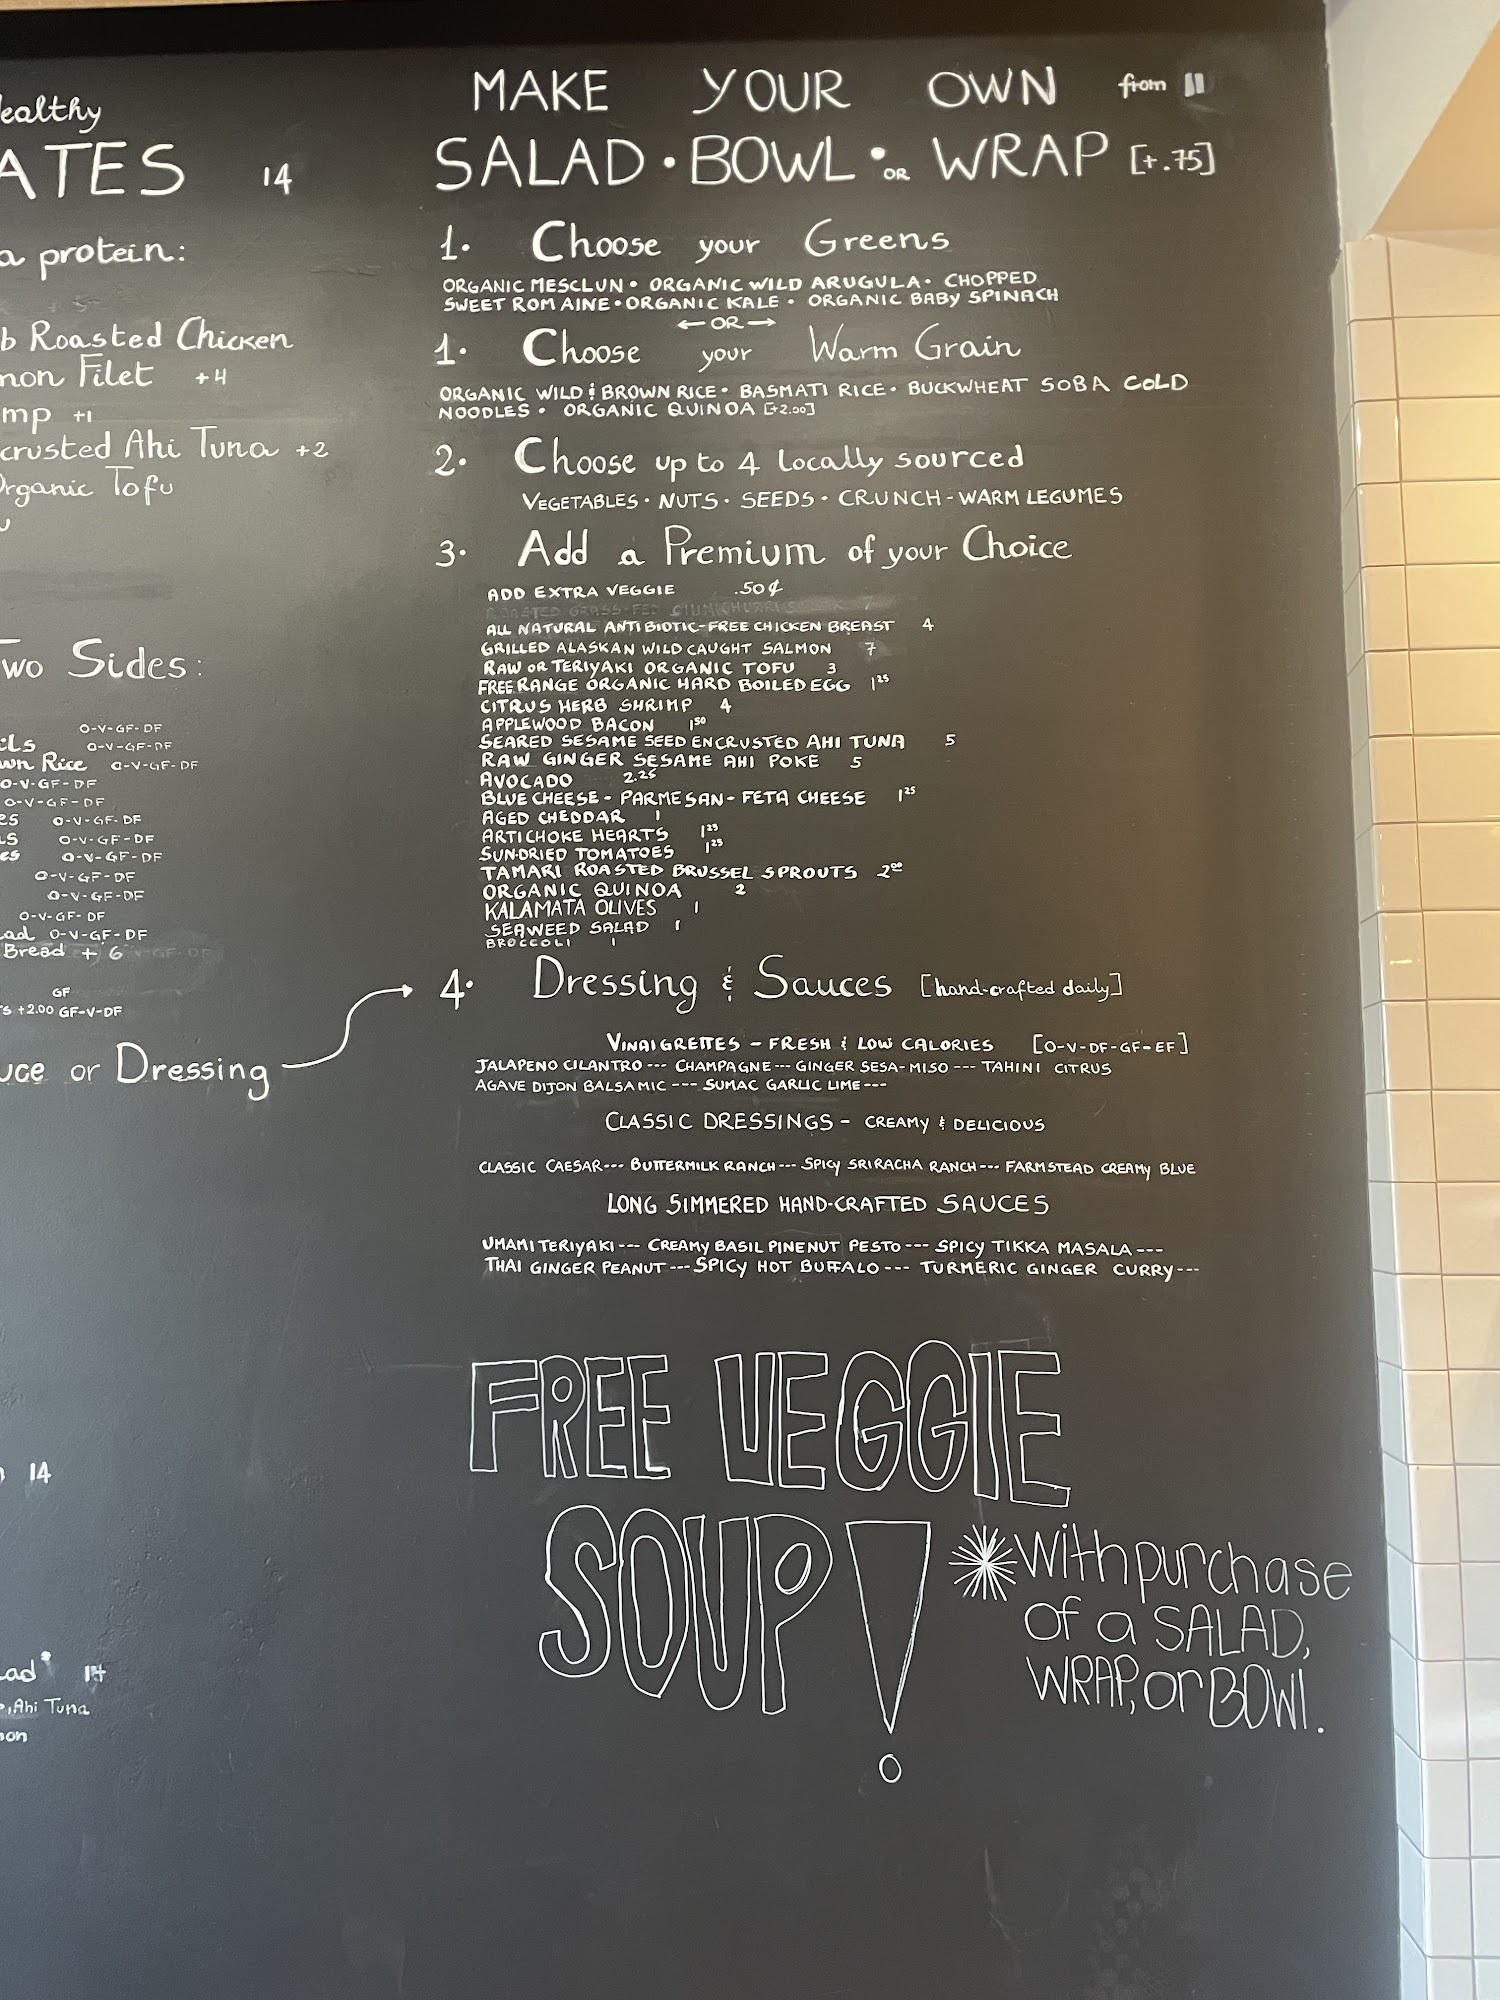 ealthy
ATES 14
a protein:
b Roasted Chicken
mon Filet +4
mp +1
crusted Ahi Tuna +2
Organic Tofu
Two Sides:
O-V-GF-DF
ils O-V-GF-DF
wn Rice O-V-GF-DF
O-V-GF-DF
O-V-GF-DF
es O-V-GF-DF
LS O-V-GF-DF
es O-V-GF-DF
O-V-GF-DF
O-V-GF-DF
O-V-GF-DF
ad O-V-GF-DF
Bread + 6
GF
s +2.00 GF-V-DF
uce or Dressing
14
ad 14
, Ahi Tuna
on
MAKE YOUR OWN from 11
SALAD • BOWL • OR WRAP [+.75]
1. Choose your Greens
ORGANIC MESCLUN • ORGANIC WILD ARUGULA • CHOPPED
SWEET ROMAINE • ORGANIC KALE • ORGANIC BABY SPINACH
← OR →
1. Choose your Warm Grain
ORGANIC WILD & BROWN RICE • BASMATI RICE • BUCKWHEAT SOBA COLD
NOODLES • ORGANIC QUINOA [+2.00]
2. Choose up to 4 locally sourced
VEGETABLES • NUTS • SEEDS • CRUNCH - WARM LEGUMES
3. Add a Premium of your Choice
ADD EXTRA VEGGIE .50¢
ALL NATURAL ANTIBIOTIC-FREE CHICKEN BREAST 4
GRILLED ALASKAN WILD CAUGHT SALMON 7
RAW OR TERIYAKI ORGANIC TOFU 3
FREE RANGE ORGANIC HARD BOILED EGG 1 25
CITRUS HERB SHRIMP 4
APPLEWOOD BACON 1 50
SEARED SESAME SEED ENCRUSTED AHI TUNA 5
RAW GINGER SESAME AHI POKE 5
AVOCADO 2.25
BLUE CHEESE - PARMESAN - FETA CHEESE 1 25
AGED CHEDDAR 1
ARTICHOKE HEARTS 1 25
SUN-DRIED TOMATOES 1 25
TAMARI ROASTED BRUSSEL SPROUTS 2 00
ORGANIC QUINOA 2
KALAMATA OLIVES 1
SEAWEED SALAD 1
BROCCOLI 1
4. Dressing & Sauces [hand-crafted daily]
VINAIGRETTES - FRESH & LOW CALORIES [O-V-DF-GF-EF]
JALAPENO CILANTRO --- CHAMPAGNE --- GINGER SESA-MISO --- TAHINI CITRUS
AGAVE DIJON BALSAMIC --- SUMAC GARLIC LIME ---
CLASSIC DRESSINGS - CREAMY & DELICIOUS
CLASSIC CAESAR --- BUTTERMILK RANCH --- SPICY SRIRACHA RANCH --- FARMSTEAD CREAMY BLUE
LONG SIMMERED HAND-CRAFTED SAUCES
UMAMI TERIYAKI --- CREAMY BASIL PINENUT PESTO --- SPICY TIKKA MASALA ---
THAI GINGER PEANUT --- SPICY HOT BUFFALO --- TURMERIC GINGER CURRY ---
FREE VEGGIE
SOUP!
*with purchase
of a SALAD,
WRAP, or BOWl.